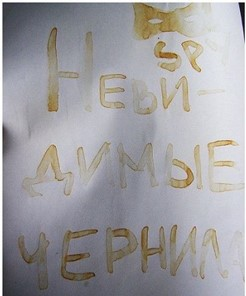 Неви-
димые
чернила